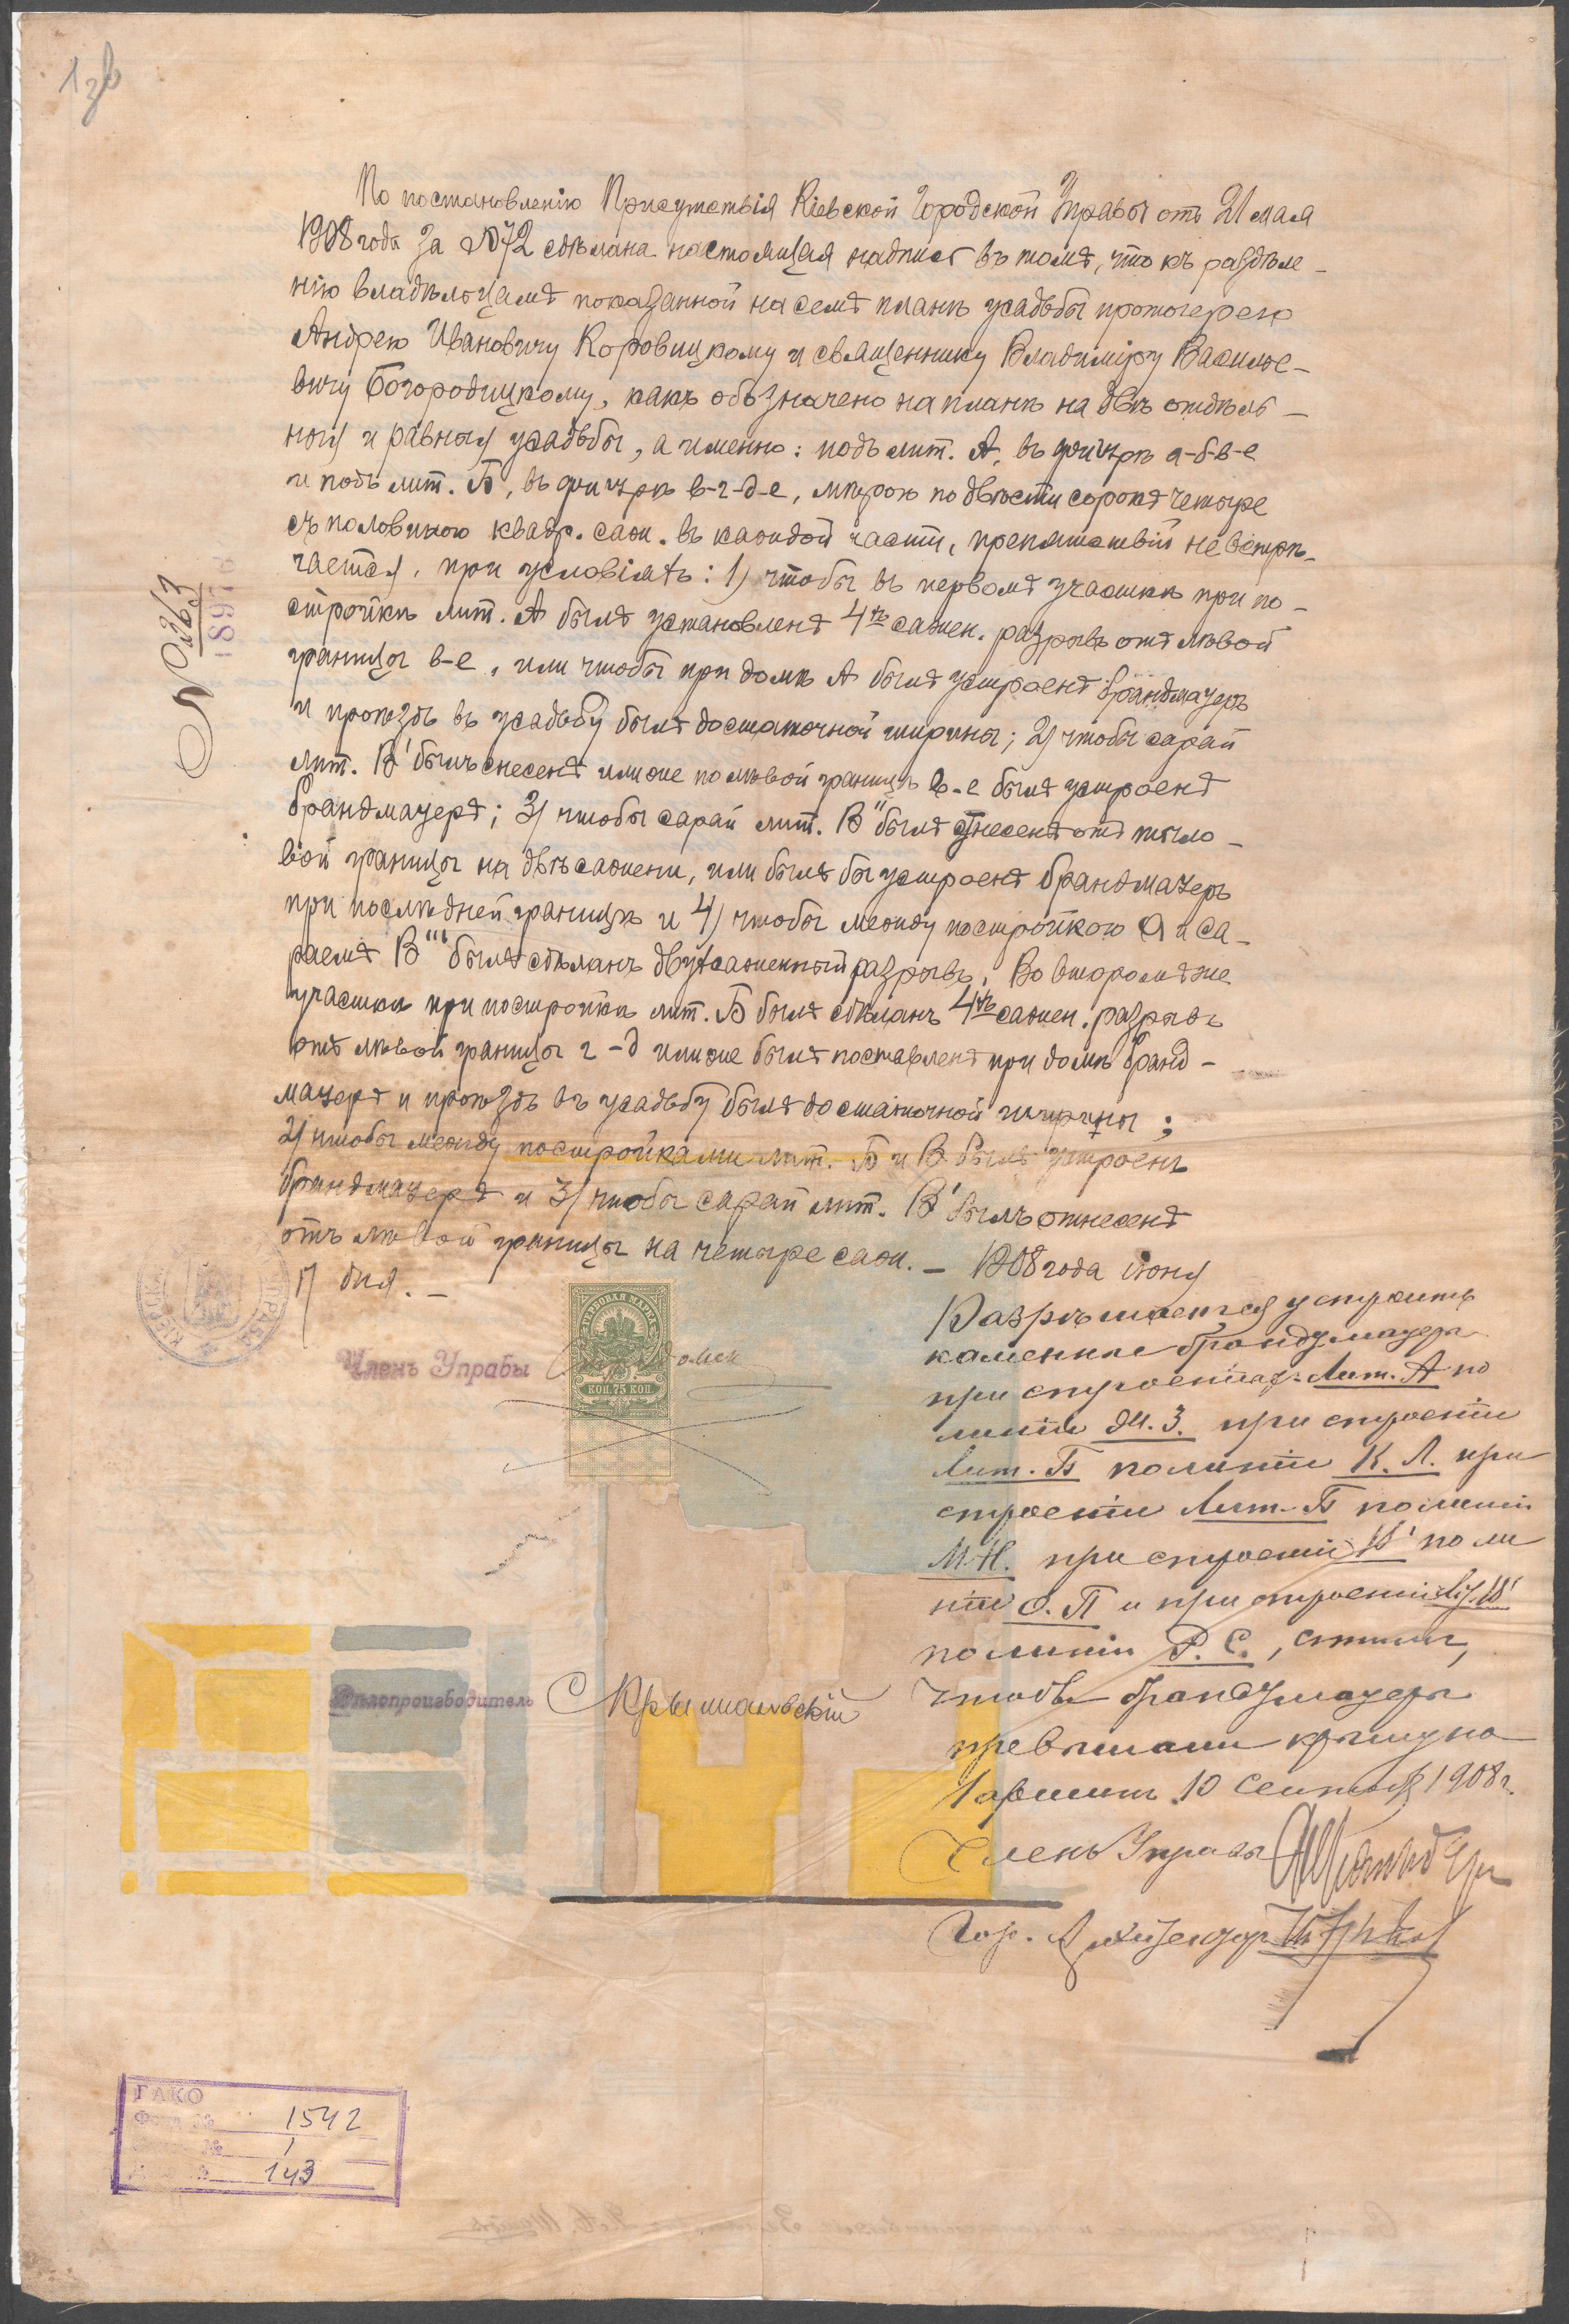 1 зв
По постановленію Присутствія Кіевской Городской Управы отъ 21 мая
1908 года за № 72 сдѣлана настоящая надпись въ томъ, что къ раздѣле-
нію владѣльцамъ показанной на семъ планѣ усадьбы протоіерею
Андрею Ивановичу Коровицкому и священнику Владиміру Василье-
вичу Богородицкому, какъ обозначено на планѣ на двѣ отдѣль-
ныя и равныя усадьбы, а именно: подъ лит. А, въ фигурѣ а-б-в-е
и подъ лит. Б, въ фигурѣ в-г-д-е, мѣрою по двѣсти сорокъ четыре
съ половиною квадр. саж. въ каждой части, препятствій не встрѣ-
чается, при условіяхъ: 1) чтобы въ первомъ участкѣ при по-
стройкѣ лит. А былъ установленъ 4хъ сажен. разрывъ отъ лѣвой
границы в-е, или чтобы при домѣ А былъ устроенъ брандмауеръ
и проѣздъ въ усадьбу былъ достаточной ширины; 2) чтобы сарай
лит. В' былъ снесенъ или же по лѣвой границѣ в-е былъ устроенъ
брандмауеръ; 3) чтобы сарай лит. В" былъ отнесенъ отъ тыло-
вой границы на двѣ сажени, или былъ бы устроенъ брандмауеръ
при послѣдней границѣ и 4) чтобы между постройкою А и са-
раемъ В"' былъ сдѣланъ двухсаженный разрывъ. Во второмъ же
участкѣ при постройкѣ лит. Б былъ сдѣланъ 4хъ сажен. разрывъ
отъ лѣвой границы г-д или же былъ поставленъ при домѣ бранд-
мауеръ и проѣздъ въ усадьбу былъ достаточной ширины;
2) чтобы между постройками лит. Б и В былъ устроенъ
брандмауеръ и 3) чтобы сарай лит. В' былъ отнесенъ
отъ лѣвой границы на четыре саж. — 1908 года іюня
17 дня. —
№ 363
Членъ Управы
ГЕРБОВАЯ МАРКА
КОП. 75 КОП.
Дѣлопроизводитель
Разрѣшается устроить
каменные брандмауеры
при строеніях: Лит. А по
линіи Ж. З. при строеніи
Лит. Б по линіи К. Л. при
строеніи Лит. Б по линіи
М. Н. при строеніи В' по ли
ніи О. П и при строеніи В'
по линіи Р. С., съ тѣмъ,
чтобы брандмауеры
превышали крышу на
1 аршинъ. 10 Сентяб. 1908 г.
Членъ Управы
Гор. Архитекторъ
ГАКО
Фонд № 1542
№ 1
№ 143